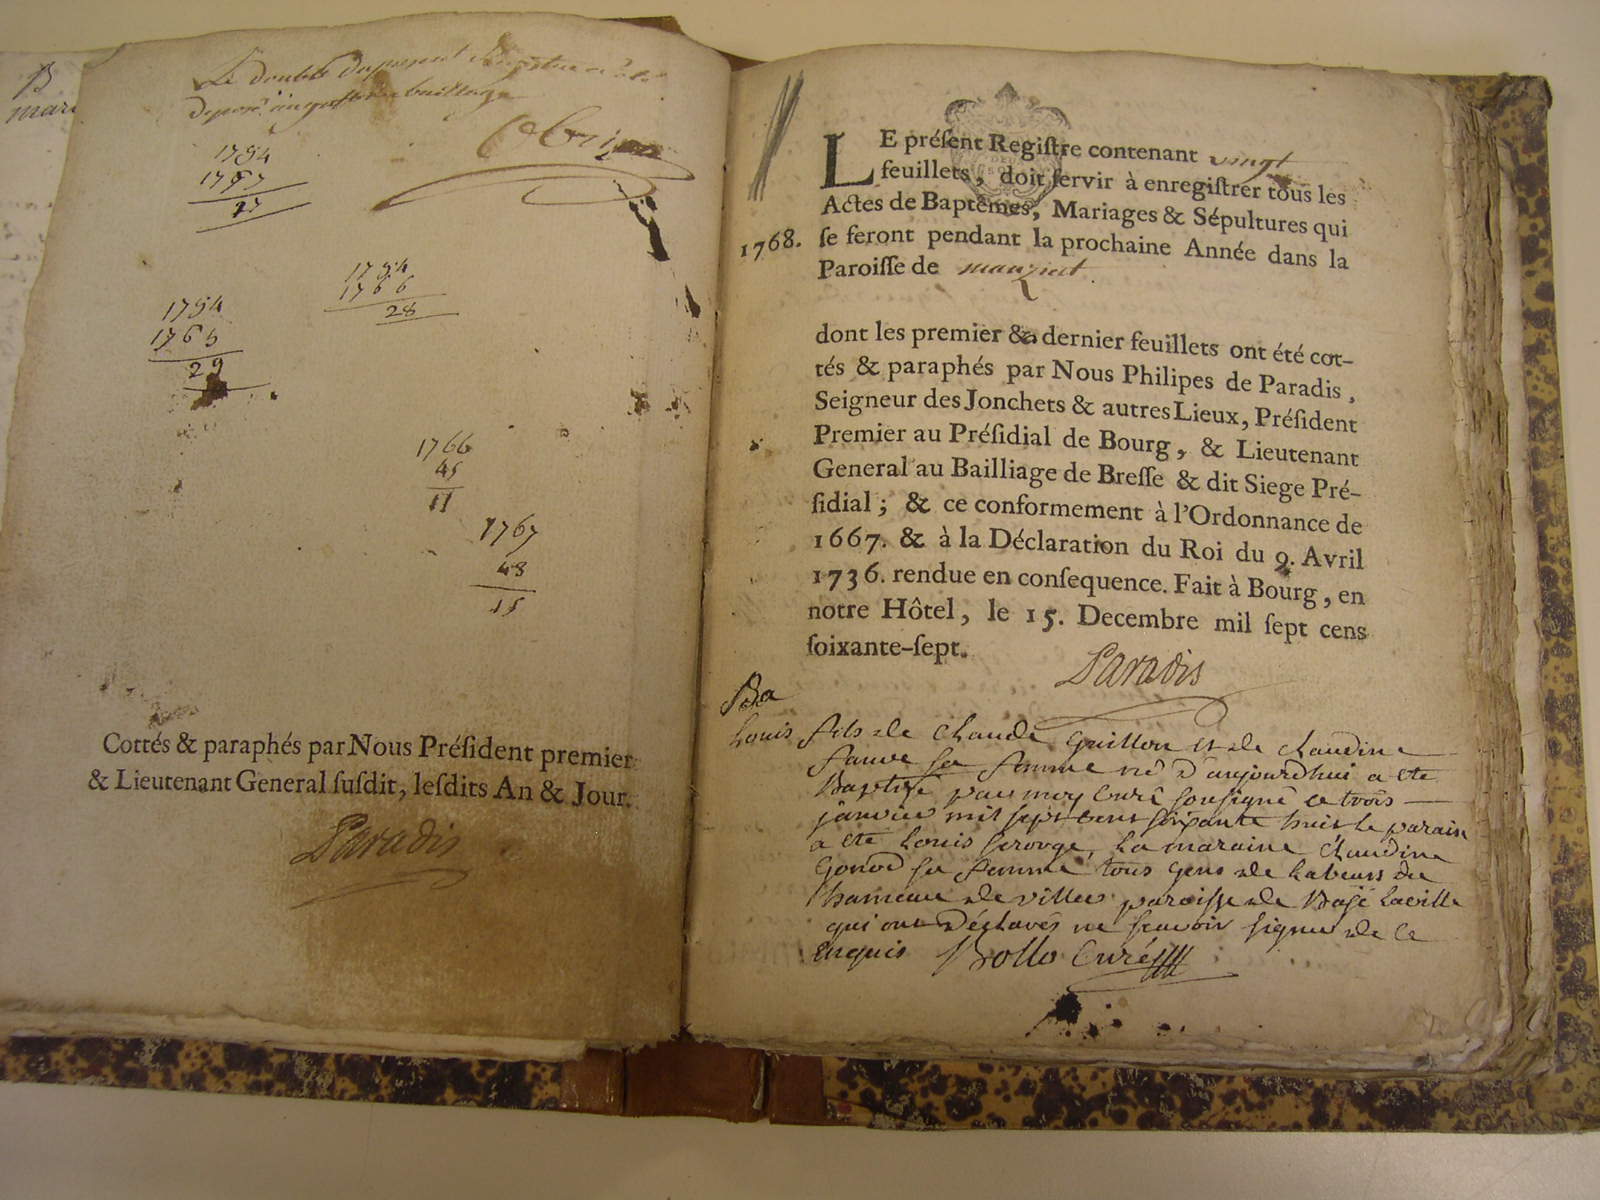 B
mari
Le double du present Registre a été
deposé au greffe du bailliage
1754
1767
1754
1766
28
1754
1765
29
1766
45
11
1767
48
15
Cottés & paraphés par Nous Préſident premier
& Lieutenant General ſuſdit, leſdits An & Jour.
Paradis
LE préſent Regiſtre contenant vingt
feuillets, doit ſervir à enregiſtrer tous les
Actes de Baptêmes, Mariages & Sépultures qui
1768. ſe feront pendant la prochaine Année dans la
Paroiſſe de manziat
dont les premier & dernier feuillets ont été cot-
tés & paraphés par Nous Philipes de Paradis,
Seigneur des Jonchets & autres Lieux, Préſident
Premier au Préſidial de Bourg, & Lieutenant
General au Bailliage de Breſſe & dit Siege Pré-
ſidial; & ce conformement à l'Ordonnance de
1667. & à la Déclaration du Roi du 9. Avril
1736. rendue en conſequence. Fait à Bourg, en
notre Hôtel, le 15. Decembre mil ſept cens
ſoixante-ſept.
Paradis
Ba
Louis fils de Claude Guillon et de claudine
faure sa femme né d'aujourdhui a ete
Baptisé par moy curé sousigné ce trois
janvier mil sept cent soixante huit le parain
a ete Louis ferouge, La maraine Claudine
Gonod sa femme tous gens de Labeurs du
hameau de villeu paroisse de Bagé Laville
qui ont déclarés ne scavoir signer de ce
enquis Brollo Curé